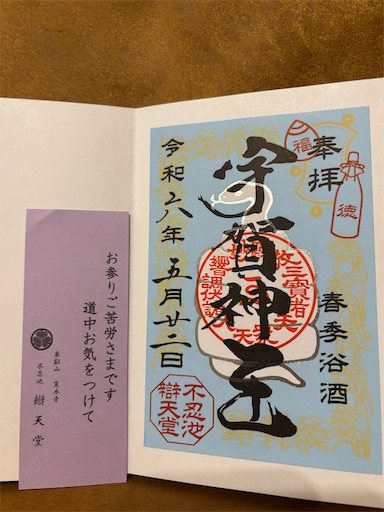 奉拝
福
徳
春季浴酒
宇賀神王
令和六年五月廿二日
不忍池
辯天堂
お参りご苦労さまです
道中お気をつけて
東叡山 寛永寺
不忍池
辯天堂